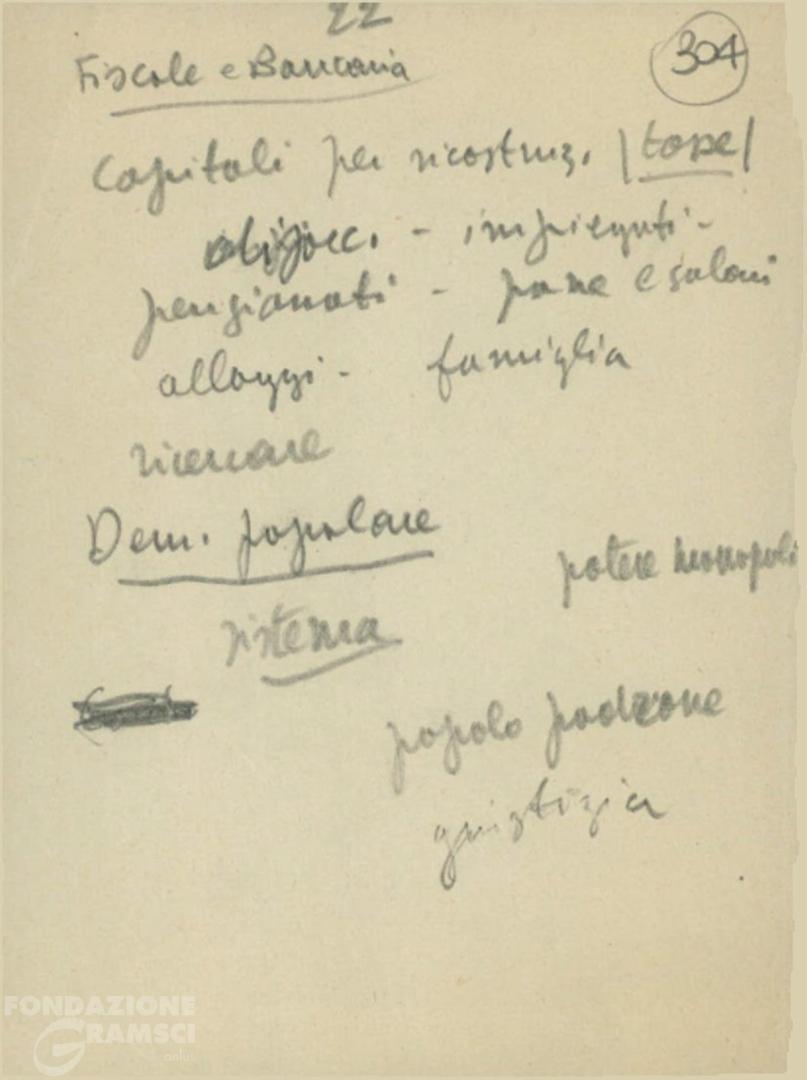 22
304
Fiscale e Bancaria
Capitali per ricostruz. |tasse|
disocc. - impiegati -
pensionati - pane e salari
alloggi - famiglia
ricercare
Dem. popolare
potere monopoli
sistema
popolo padrone
giustizia
FONDAZIONE
GRAMSCI
onlus